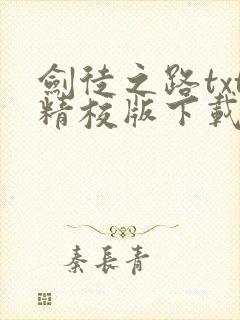 劍徒之路txt
精校版下載
秦長青